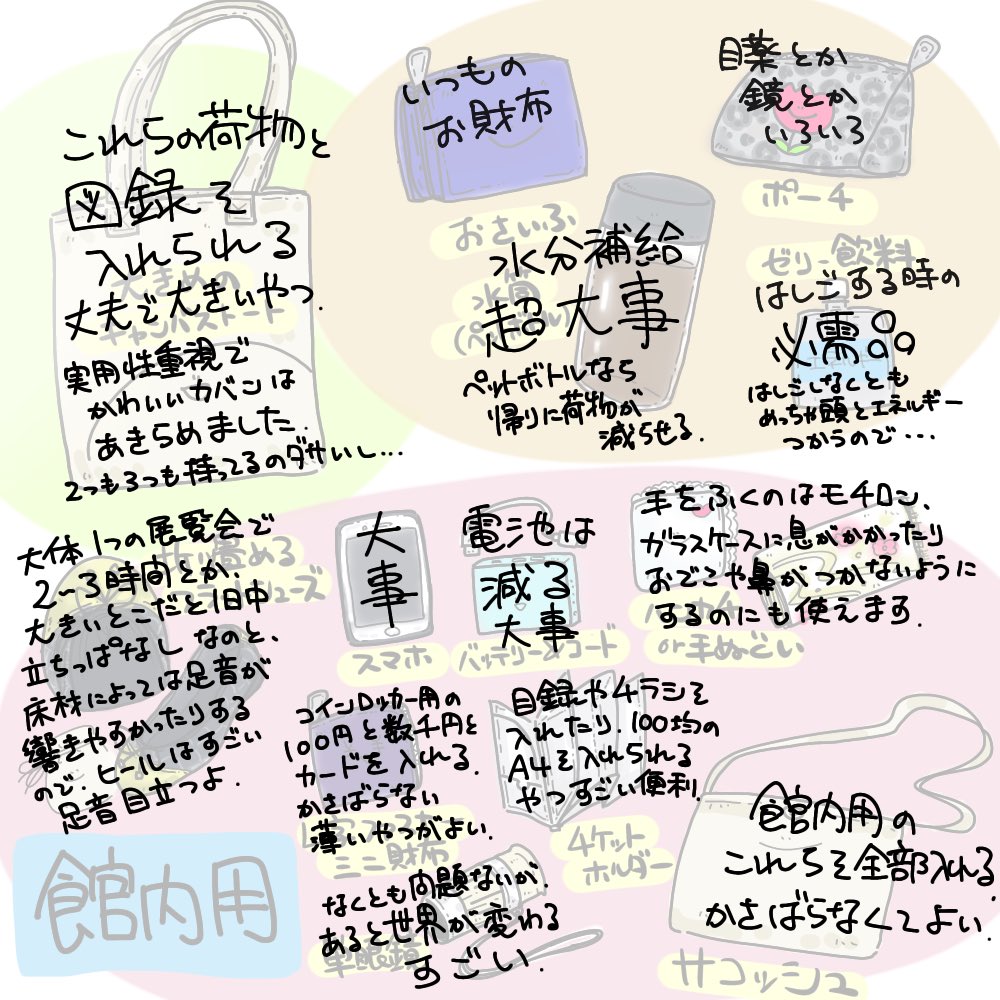 これらの荷物と
図録を
入れられる
丈夫で大きいやつ.
実用性重視で
かわいいカバンは
あきらめました.
2つも3つも持ってるのダサいし...
大きめの
キャンバストート
いつもの
お財布
おさいふ
目薬とか
鏡とか
いろいろ
ポーチ
水分補給
超大事
ペットボトルなら
帰りに荷物が
減らせる.
水筒
ゼリー飲料
はしごする時の
必需品。
はしごしなくとも
めっちゃ頭とエネルギー
つかうので...
大体1つの展覧会で
2〜3時間とか、
大きいとこだと1日中
立ちっぱなしなのと、
床材によっては足音が
響きやすかったりする
ので、ヒールはすごい
足音目立つよ.
大
事
スマホ
電池は
減る
大事
バッテリー&コード
手をふくのはモチロン、
ガラスケースに息がかかったり
おでこや鼻がつかないように
するのにも使えます.
ハンカチ
or手ぬぐい
コインロッカー用の
100円と数千円と
カードを入れる.
かさばらない
薄いやつがよい.
ミニ財布
目録やチラシを
入れたり.100均の
A4を入れられる
やつすごい便利.
チケット
ホルダー
なくとも問題ないが、
あると世界が変わる
すごい.
単眼鏡
館内用の
これらを全部入れる.
かさばらなくてよい.
サコッシュ
館内用